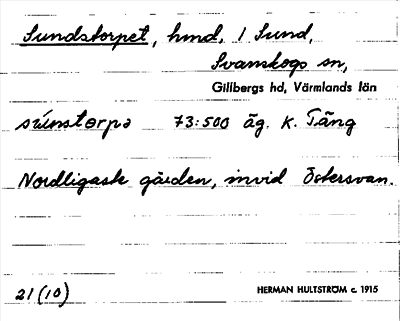 Sundstorpet, hmd, 1 Sund,
Svanskogs sn,
Gillbergs hd, Värmlands län
súnstorpə 73:500 äg. K. Täng
Nordligaste gården, invid Östersvan.
21 (10)
HERMAN HULTSTRÖM c. 1915